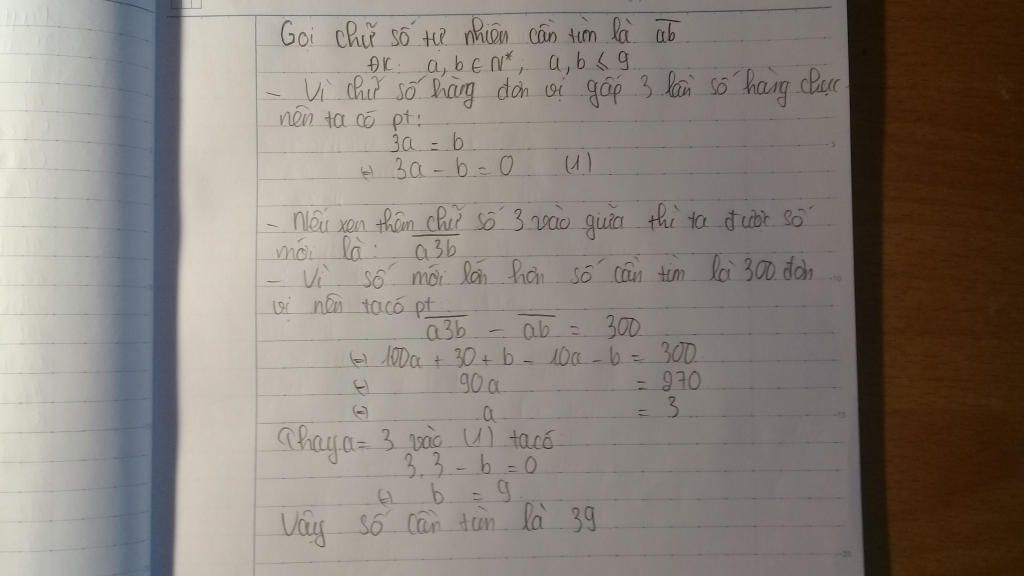 Gọi chữ số tự nhiên cần tìm là ab
ĐK: a, b ∈ N*; a, b ≤ 9
- Vì chữ số hàng đơn vị gấp 3 lần số hàng chục
nên ta có pt:
3a = b
⇔ 3a - b = 0 (1)
- Nếu xen thêm chữ số 3 vào giữa thì ta được số
mới là: a3b
- Vì số mới lớn hơn số cần tìm là 300 đơn
vị nên ta có pt
a3b - ab = 300
⇔ 100a + 30 + b - 10a - b = 300
⇔ 90a = 270
⇔ a = 3
Thay a = 3 vào (1) ta có
3.3 - b = 0
⇔ b = 9
Vậy số cần tìm là 39